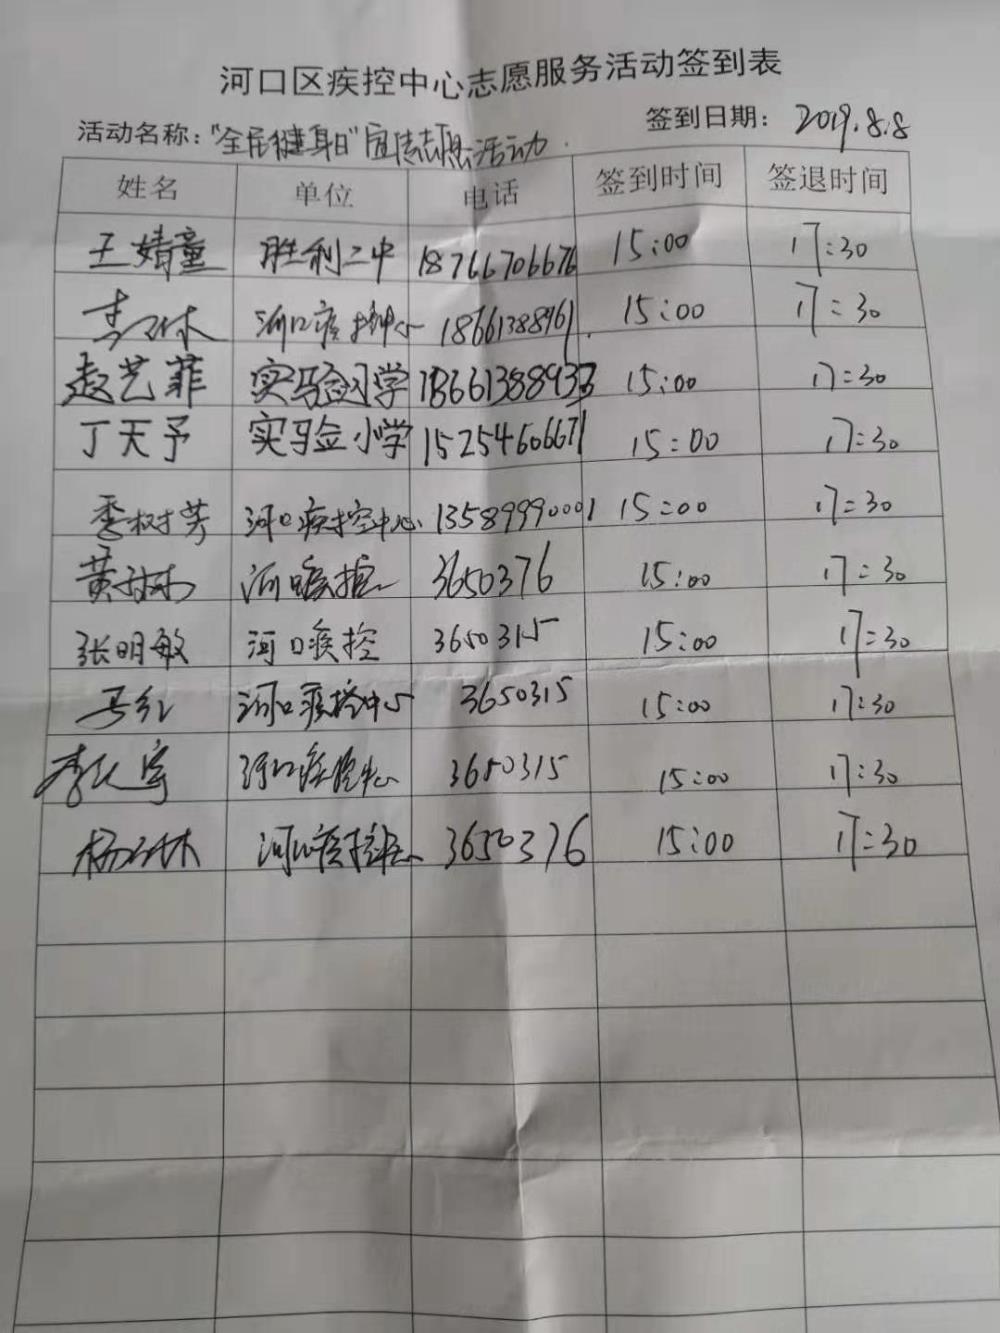 河口区疾控中心志愿服务活动签到表
活动名称："全民健身日"宣传志愿活动. 签到日期：2019.8.8
姓名 单位 电话 签到时间 签退时间
王婧童 胜利二中 18766706676 15:00 17:30
河口疾控中心 18661388961 15:00 17:30
赵艺菲 实验小学 18661388933 15:00 17:30
丁天予 实验小学 15254606671 15:00 17:30
季树芳 河口疾控中心 13589990001 15:00 17:30
黄 河口疾控 3650376 15:00 17:30
张明敏 河口疾控 3650315 15:00 17:30
马红 河口疾控中心 3650315 15:00 17:30
李 河口疾控中心 3650315 15:00 17:30
杨 河口疾控中心 3650376 15:00 17:30